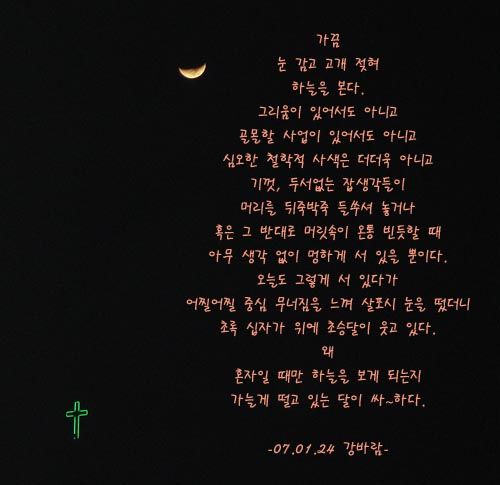 가끔
눈 감고 고개 젖혀
하늘을 본다.
그리움이 있어서도 아니고
골몰할 사업이 있어서도 아니고
심오한 철학적 사색은 더더욱 아니고
기껏, 두서없는 잡생각들이
머리를 뒤죽박죽 들쑤셔 놓거나
혹은 그 반대로 머릿속이 온통 빈듯할 때
아무 생각 없이 멍하게 서 있을 뿐이다.
오늘도 그렇게 서 있다가
어찔어찔 중심 무너짐을 느껴 살포시 눈을 떴더니
초록 십자가 위에 초승달이 웃고 있다.
왜
혼자일 때만 하늘을 보게 되는지
가늘게 떨고 있는 달이 싸~하다.
-07.01.24 강바람-